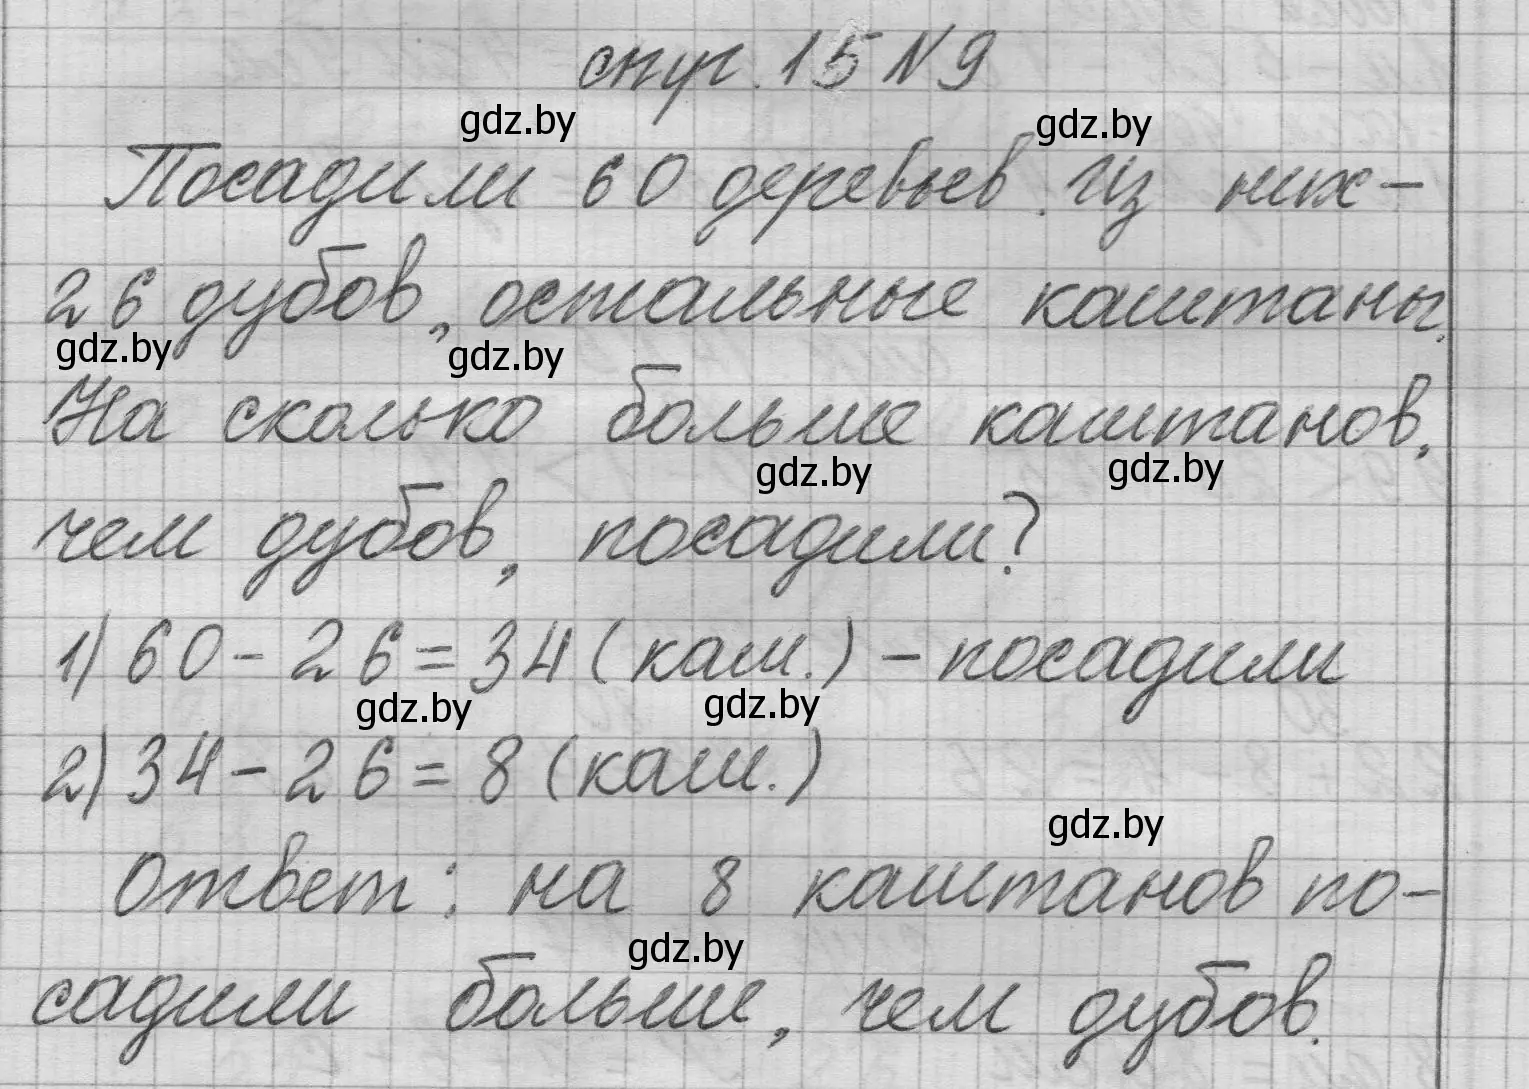 стр. 15 № 9
gdz.by gdz.by
Посадили 60 деревьев. Из них -
26 дубов, остальные каштаны.
gdz.by gdz.by
На сколько больше каштанов,
gdz.by gdz.by
чем дубов, посадили?
1) 60 - 26 = 34 (каш.) - посадили
gdz.by gdz.by
2) 34 - 26 = 8 (каш.)
gdz.by
Ответ: на 8 каштанов по-
gdz.by
садили больше, чем дубов.